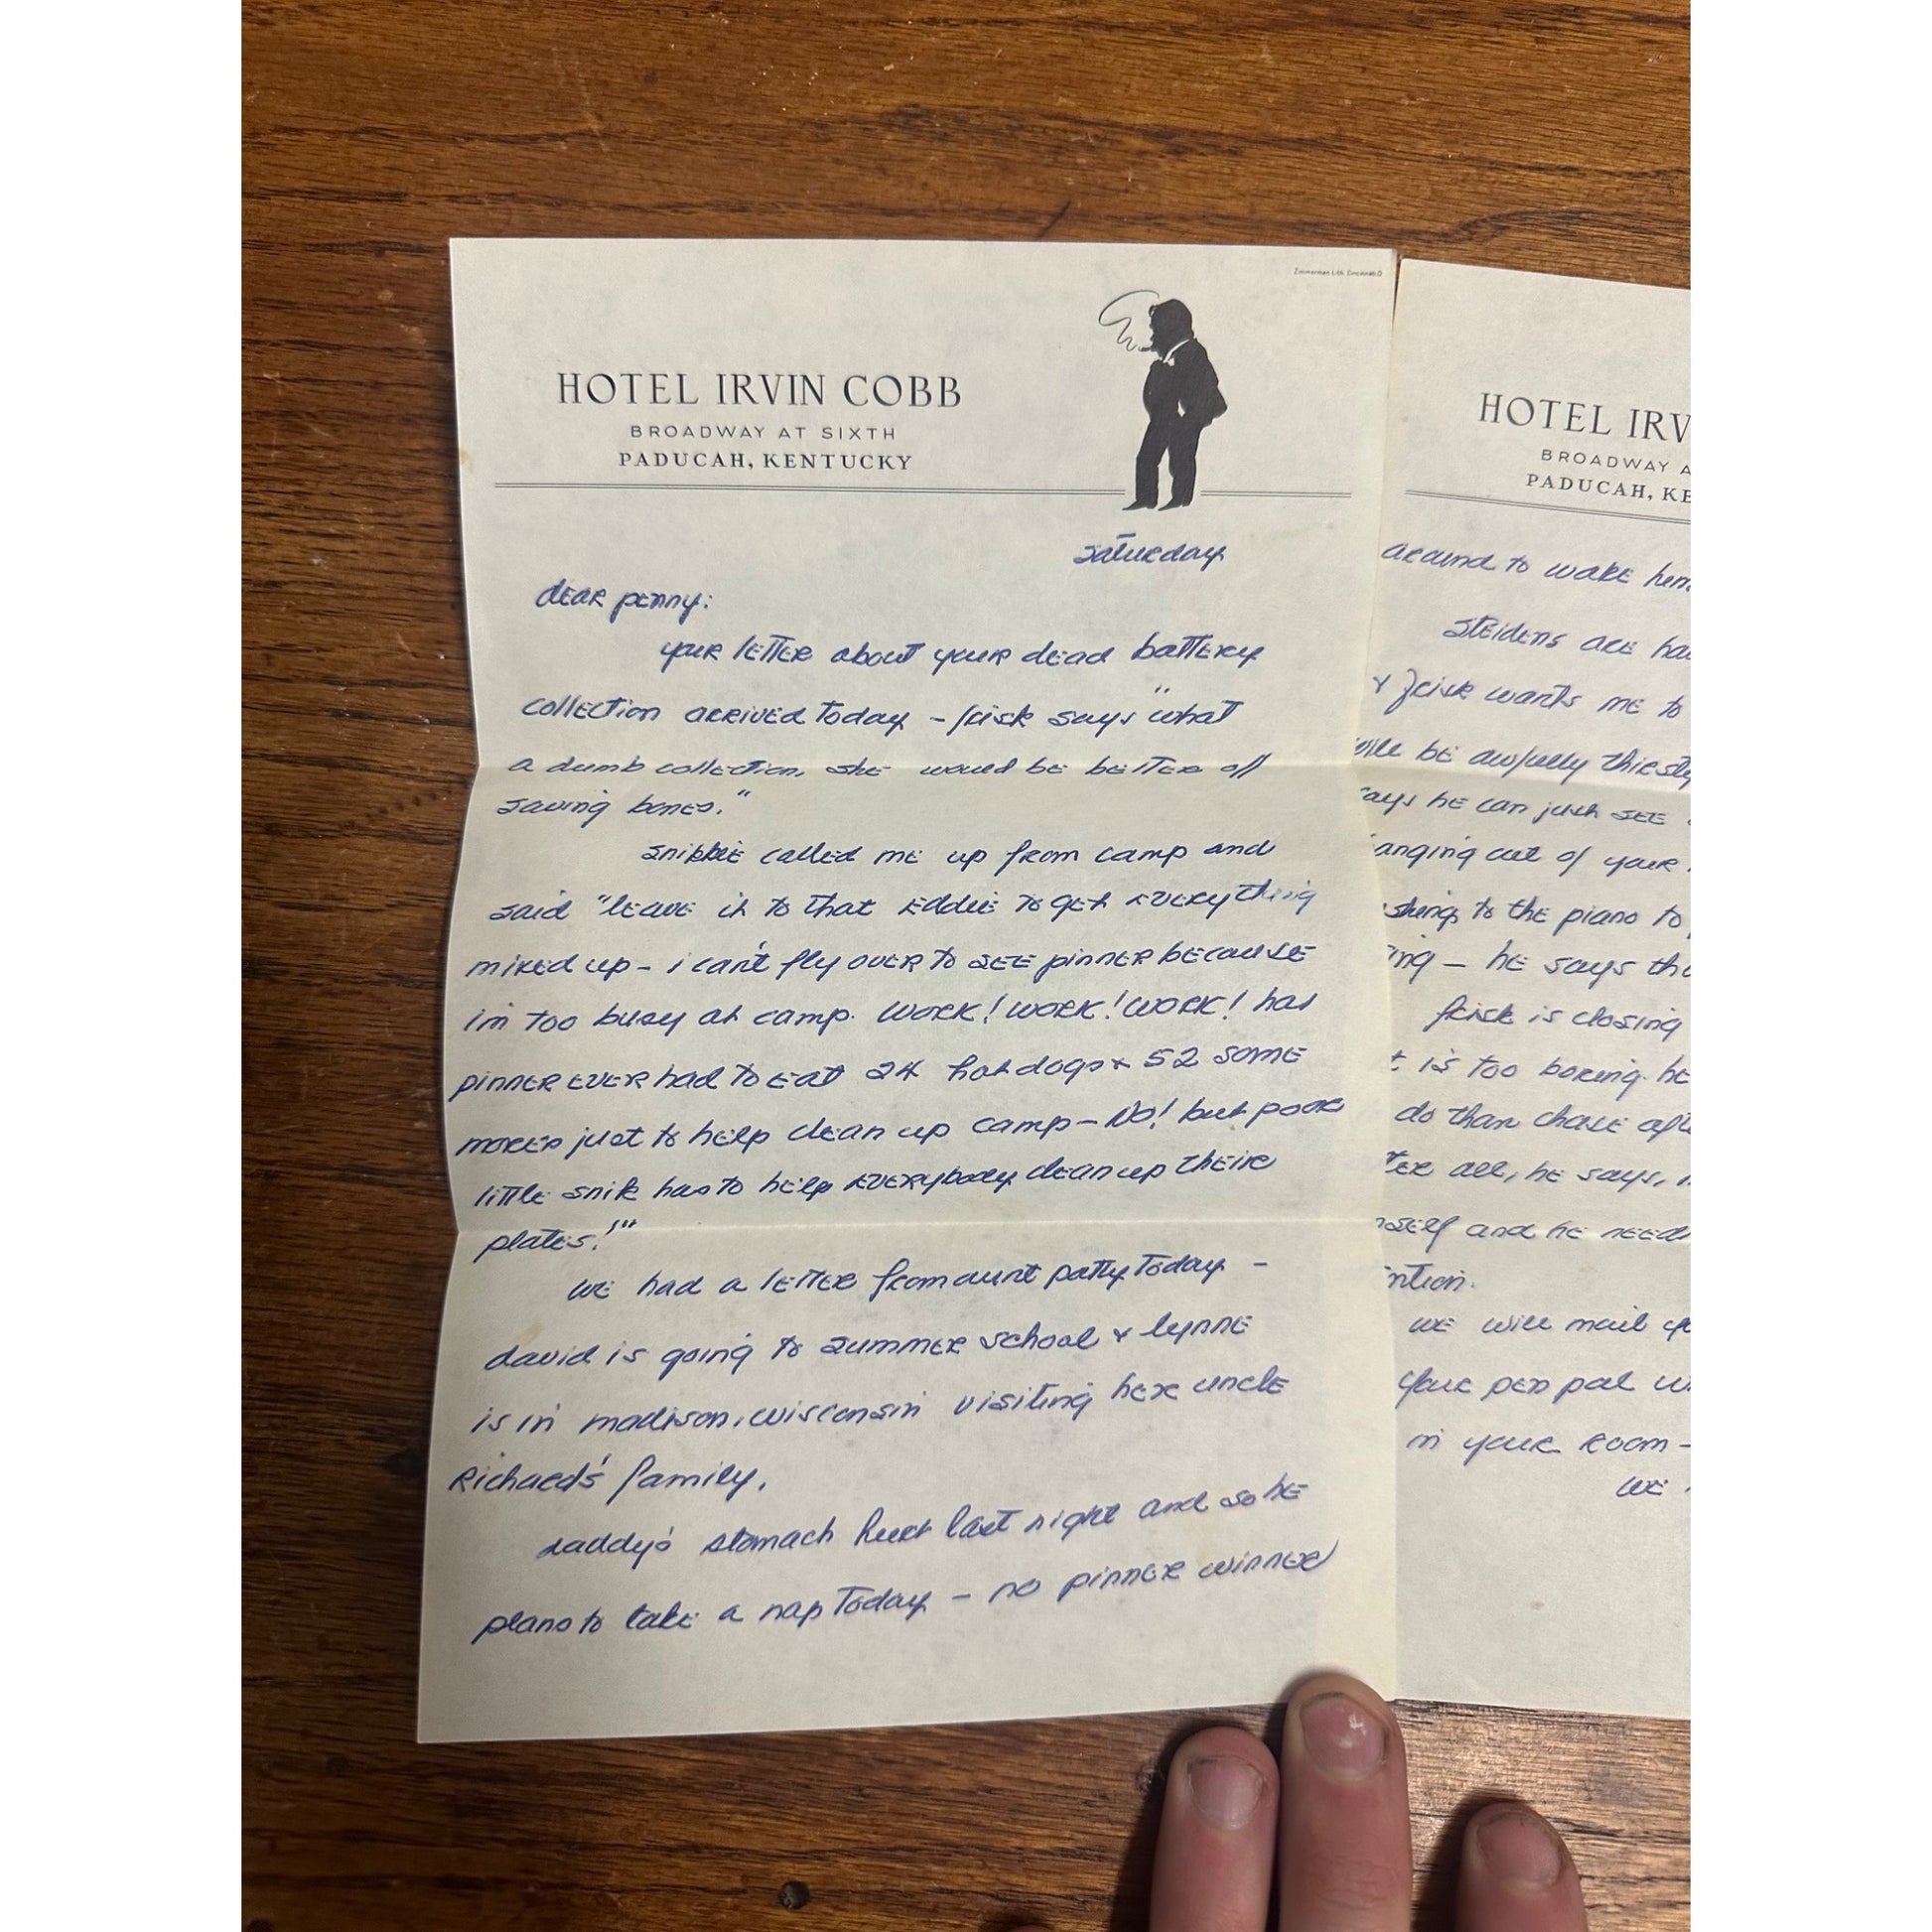 Zimmerman Lith. Cincinnati O
HOTEL IRVIN COBB
BROADWAY AT SIXTH
PADUCAH, KENTUCKY
saturday
dear penny:
your letter about your dead battery
collection arrived today - frisk says "what
a dumb collection, she would be better off
saving bones."
snibbie called me up from camp and
said "leave it to that Eddie to get everything
mixed up - i can't fly over to see pinner because
im too busy at camp. work! work! work! has
pinner ever had to eat 24 hot dogs & 52 some
mores just to help clean up camp - No! but poor
little snik has to help everybody clean up their
plates!"
we had a letter from aunt patty today -
david is going to summer school & lynne
is in madison, wisconsin visiting her uncle
Richard's family.
daddy's stomach hurt last night and so he
plans to take a nap today - no pinner winner
HOTEL IRV
BROADWAY A
PADUCAH, KE
around to wake him
steidens are ha
& frisk wants me to
will be awfully thirsty
says he can just see
hanging out of your
to the piano to
ing - he says tha
frisk is closing
is too boring. he
do than chase aft
ter all, he says,
self and he needs
ntion.
we will mail yo
your pen pal w
in your room -
we